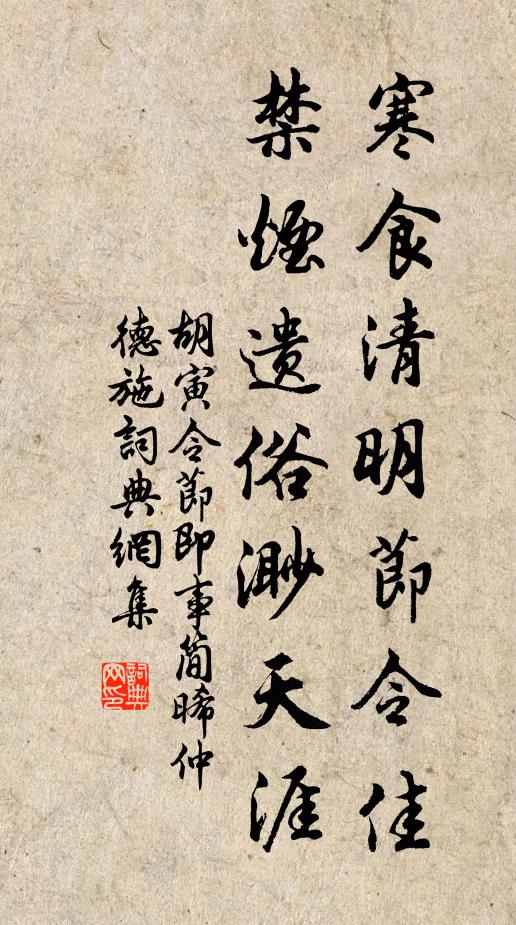 寒食清明節令佳
禁煙遺俗渺天涯
胡寅令節即事簡晞仲
德施詞典網集
詞典网印